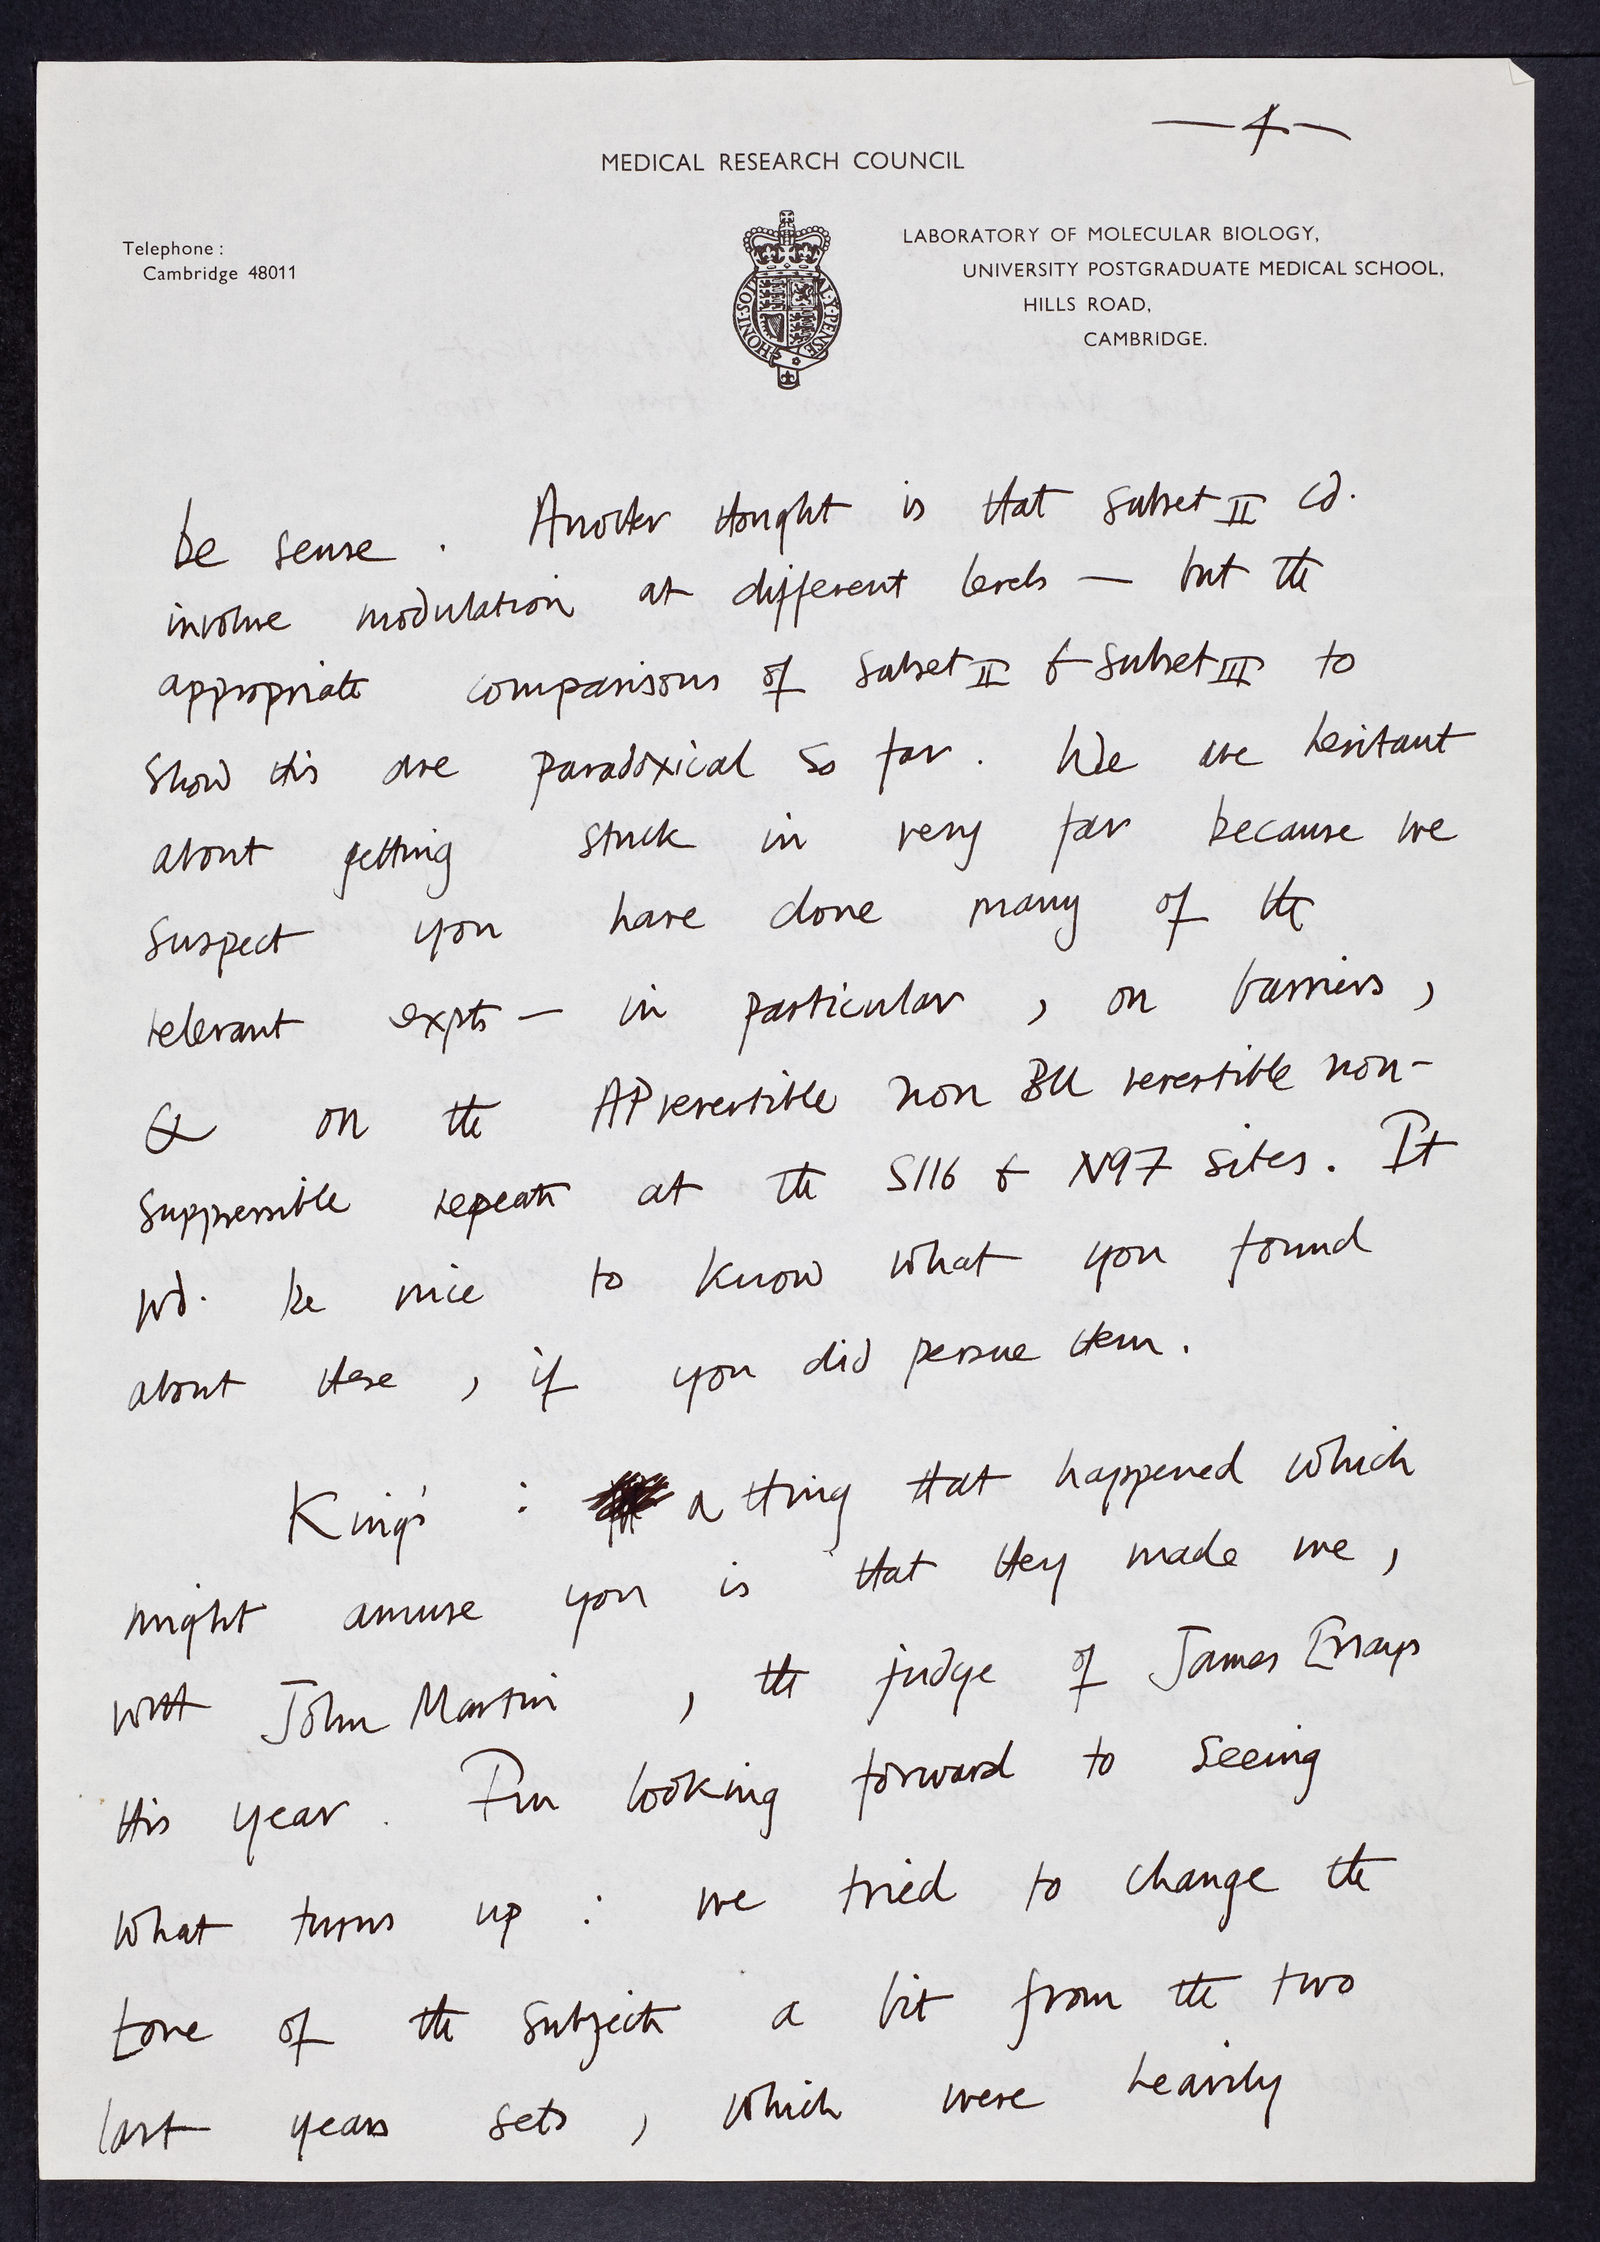 —4—
MEDICAL RESEARCH COUNCIL
Telephone :
Cambridge 48011
LABORATORY OF MOLECULAR BIOLOGY,
UNIVERSITY POSTGRADUATE MEDICAL SCHOOL,
HILLS ROAD,
CAMBRIDGE.
HONI·SOI AL·Y·PENSE
be sense. Another thought is that subset II cd.
involve modulation at different levels — but the
appropriate comparisons of subset II & subset III to
show this are paradoxical so far. We are hesitant
about getting stuck in very far because we
suspect you have done many of the
relevant expts — in particular, on barriers,
& on the AP revertible non BU revertible non-
suppressible repeats at the S116 & N97 sites. It
wd. be nice to know what you found
about these, if you did persue them.
King's : a thing that happened which
might amuse you is that they made me,
with John Martin, the judge of James Essays
this year. I'm looking forward to seeing
what turns up : we tried to change the
tone of the subjects a bit from the two
last years sets, which were heavily